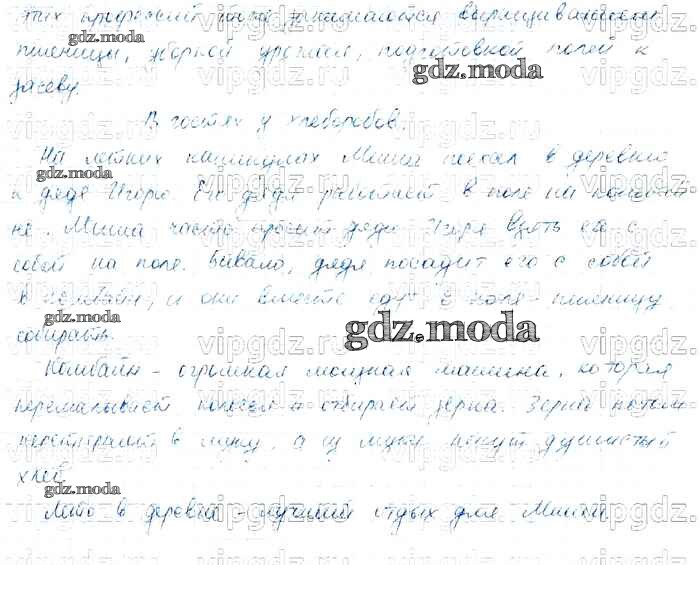 этих профессий люди занимаются выращиванием
пшеницы, уборкой урожая, подготовкой полей к
засеву.
В гостях у хлеборобов.
На летних каникулах Миша поехал в деревню
к дяде Игорю. Его дядя работает в поле на комбай-
не. Миша часто просит дядю Игоря взять его с
собой на поле. Бывало, дядя посадит его с собой
в комбайн, и они вместе едут в поле - пшеницу
собирать.
Комбайн - огромная мощная машина, которая
перемалывает колосья и отбирает зёрна. Зёрна потом
перетирают в муку, а из муки пекут душистый
хлеб.
Лето в деревне - лучший отдых для Миши.
gdz.moda
gdz.moda
gdz.moda
gdz.moda
gdz.moda
gdz.moda
vipgdz.ru